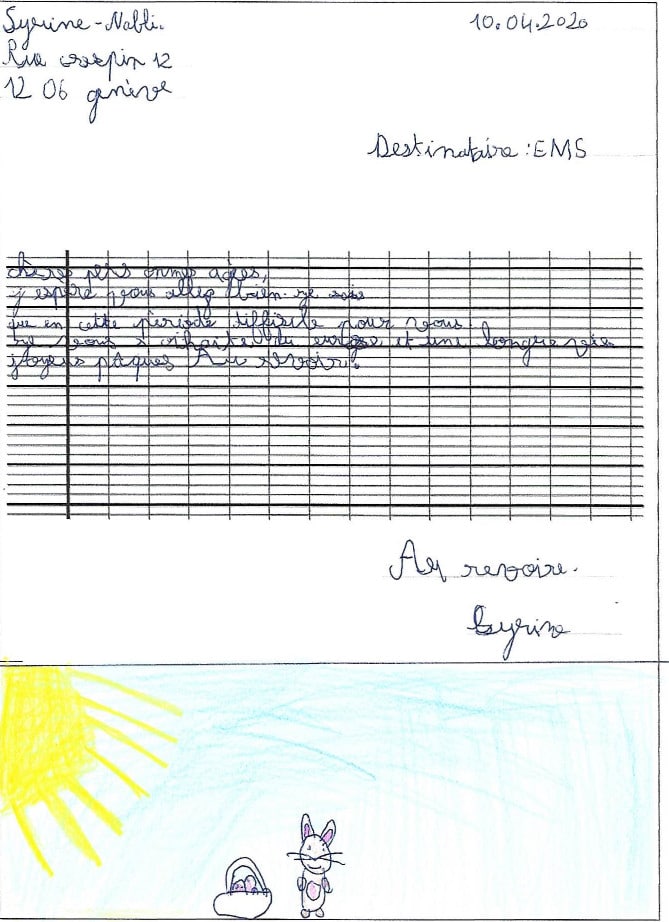 Syrine-Nabli.
10.04.2020
Rue crespin 12
12 06 genève
Destinataire : EMS
chères pers onnes agées,
j espère vous allez bien. je sais
que en cette période diffisile pour vous.
je vous s ouhaite du et une longue vie.
joyeus pâques Au revoir.
Au revoire.
Syrine